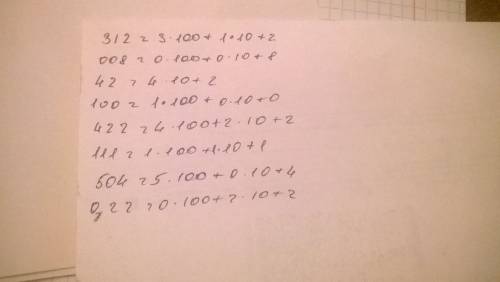 312 = 3·100+1·10+2
008 = 0·100+0·10+8
42 = 4·10+2
100 = 1·100+0·10+0
422 = 4·100+2·10+2
111 = 1·100+1·10+1
504 = 5·100+0·10+4
022 = 0·100+2·10+2